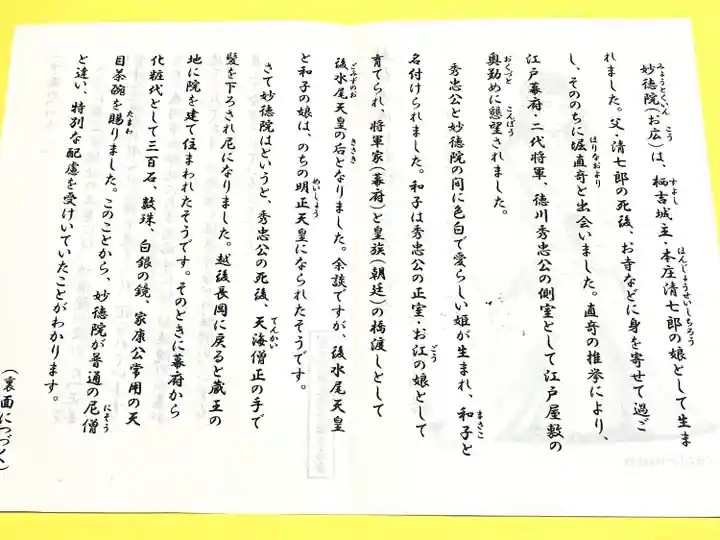 妙徳院(お広)は、栖吉城主・本庄清七郎の娘として生ま
れました。父・清七郎の死後、お寺などに身を寄せて過ご
し、そののちに堀直寄と出会いました。直寄の推挙により、
江戸幕府・二代将軍、徳川秀忠公の側室として江戸屋敷の
奥勤めに懇望されました。
秀忠公と妙徳院の間に色白で愛らしい姫が生まれ、和子と
名付けられました。和子は秀忠公の正室・お江の娘として
育てられ、将軍家(幕府)と皇族(朝廷)の橋渡しとして
後水尾天皇の后となりました。余談ですが、後水尾天皇
と和子の娘は、のちの明正天皇になられたそうです。
さて妙徳院はというと、秀忠公の死後、天海僧正の手で
髪を下ろされ尼になりました。越後長岡に戻ると蔵王の
地に院を建て住まわれたそうです。そのときに幕府から
化粧代として三百石、数珠、白銀の鏡、家康公常用の天
目茶碗を賜りました。このことから、妙徳院が普通の尼僧
と違い、特別な配慮を受けいていたことがわかります。
(裏面につづく)